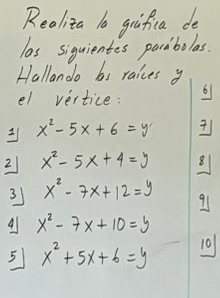 Realiza la gráfica de
las siguientes parábolas.
Hallando las raíces y
el vértice:
1] x² - 5x + 6 = y
2] x² - 5x + 4 = y
3] x² - 7x + 12 = y
4] x² - 7x + 10 = y
5] x² + 5x + 6 = y
6]
7]
8]
9]
10]